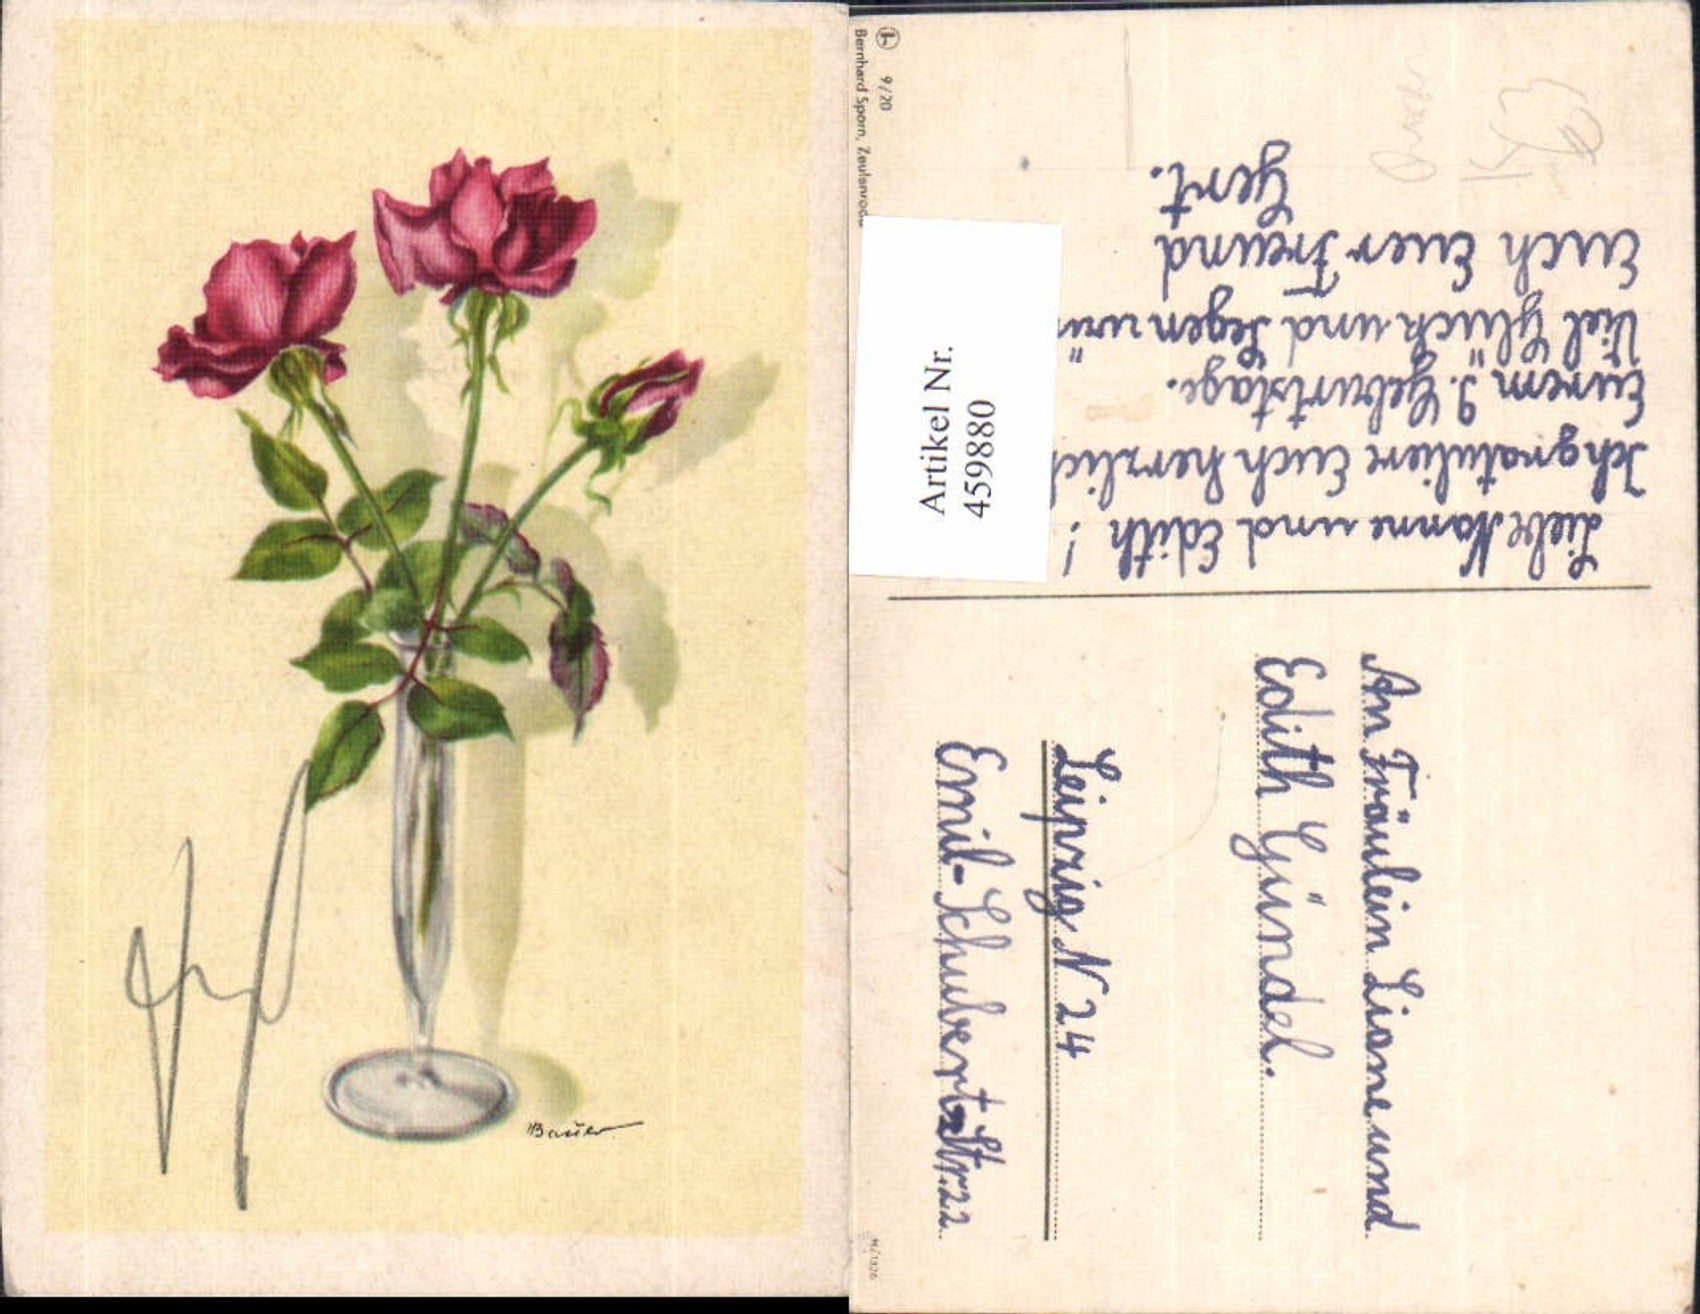 Bauer
9/20
Bernhard Sporn, Zeulenroda
Artikel Nr.
459880
Liebe Nanne und Edith!
Ich gratuliere Euch herzlich
Eurem 9. Geburtstage.
Viel Glück und Segen
Euch Euer Freund
Gert.
An Fräulein Liane und
Edith Gündel.
Leipzig N 24
Emil-Schubert-Str. 22